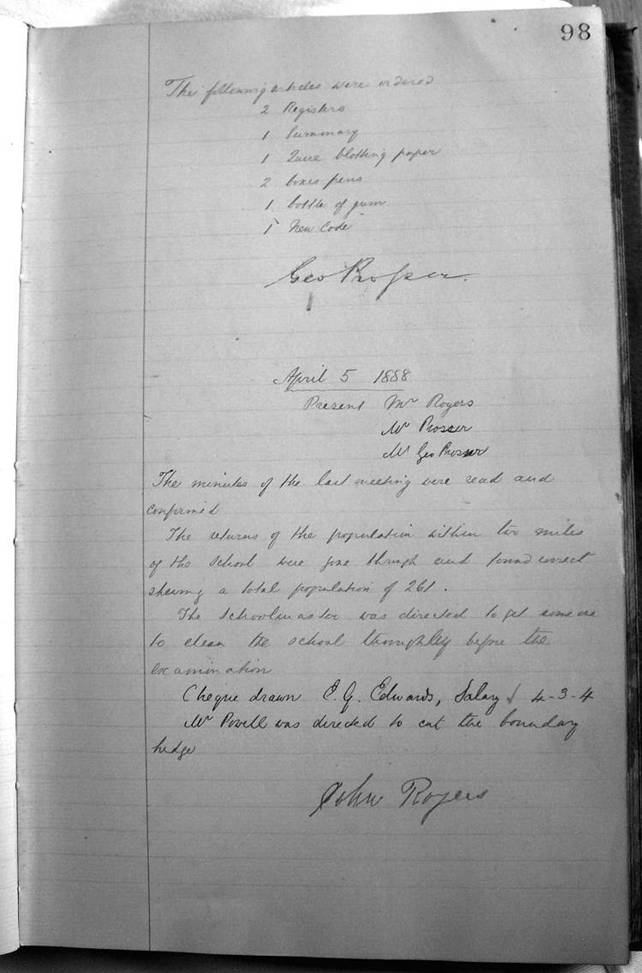 98
The following articles were ordered
2 Registers
1 Summary
1 Quire blotting paper
2 boxes pens
1 bottle of gum
1 New Code
Geo Prosser.
April 5 1888
Present Mr Rogers
Mr Prosser
Mr Geo Prosser
The minutes of the last meeting were read and
confirmed
The returns of the population within two miles
of the school were gone through and found correct
shewing a total population of 261.
The Schoolmaster was directed to get some one
to clean the school thoroughly before the
examination
Cheque drawn E. G. Edwards, Salary £ 4-3-4
Mr Powell was directed to cut the boundary
hedge
John Rogers